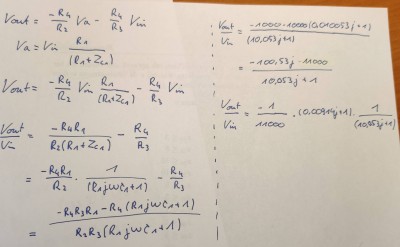 Vout = -R4/R2 Va - R4/R3 Vin
Va = Vin R1/(R1+Zc1)
Vout = -R4/R2 Vin R1/(R1+Zc1) - R4/R3 Vin
Vout/Vin = -R4R1/R2(R1+Zc1) - R4/R3
= -R4R1/R2 · 1/(R1jωC1+1) - R4/R3
= -R4R3R1-R4(R1jωC1+1)/R2R3(R1jωC1+1)
Vout/Vin = -1000·10000(0,010053j+1)/(10,053j+1)
= -100,53j·11000/10,053j+1
Vout/Vin = -1/11000 · (0,00914j+1) · 1/(10,053j+1)